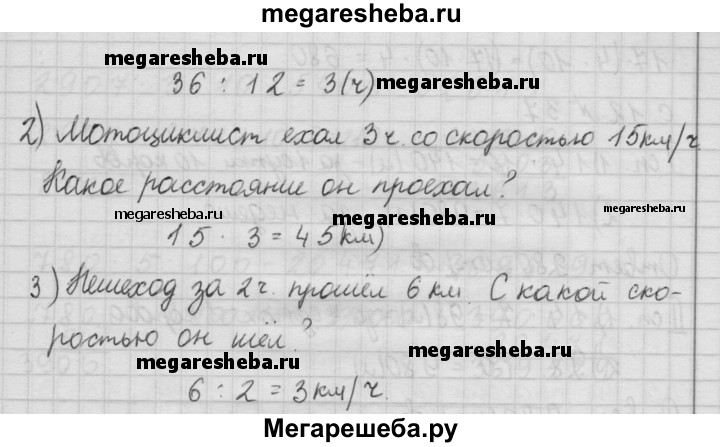 megaresheba.ru
megaresheba.ru
36 : 12 = 3(ч) megaresheba.ru
2) Мотоциклист ехал 3ч. со скоростью 15км/ч.
Какое расстояние он проехал?
megaresheba.ru megaresheba.ru megaresheba.ru
15 · 3 = 45км)
3) Пешеход за 2ч. прошёл 6км. С какой ско-
ростью он шёл?
megaresheba.ru megaresheba.ru
6 : 2 = 3км/ч.
Мегарешеба.ру